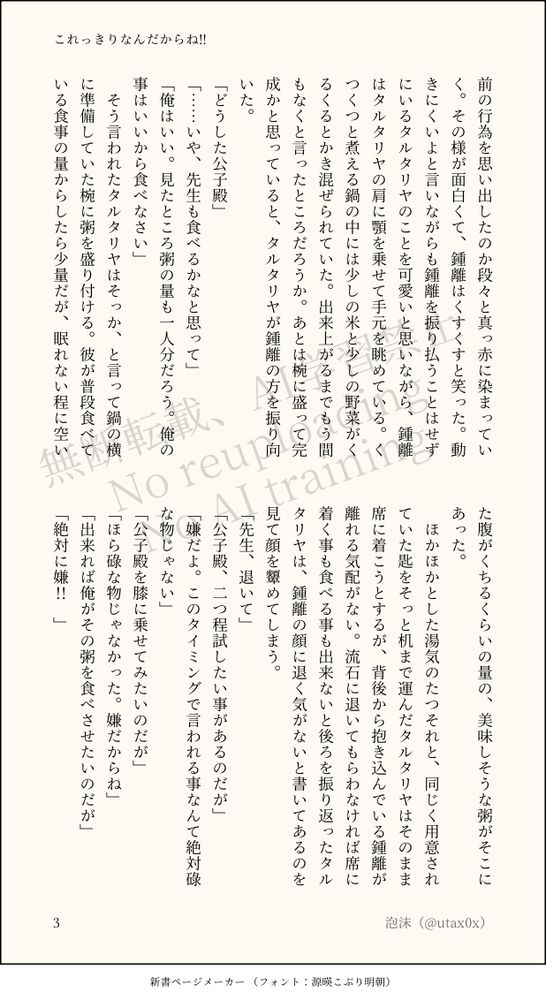 これっきりなんだからね!!
前の行為を思い出したのか段々と真っ赤に染まってい
く。その様が面白くて、鍾離はくすくすと笑った。動
きにくいよと言いながらも鍾離を振り払うことはせず
にいるタルタリヤのことを可愛いと思いながら、鍾離
はタルタリヤの肩に顎を乗せて手元を眺めている。く
つくつと煮える鍋の中には少しの米と少しの野菜がく
るくるとかき混ぜられていた。出来上がるまでもう間
もなくと言ったところだろうか。あとは椀に盛って完
成かと思っていると、タルタリヤが鍾離の方を振り向
いた。
「どうした公子殿」
「……いや、先生も食べるかなと思って」
「俺はいい。見たところ粥の量も一人分だろう。俺の
事はいいから食べなさい」
そう言われたタルタリヤはそっか、と言って鍋の横
に準備していた椀に粥を盛り付ける。彼が普段食べて
いる食事の量からしたら少量だが、眠れない程に空い
た腹がくちるくらいの量の、美味しそうな粥がそこに
あった。
ほかほかとした湯気のたつそれと、同じく用意され
ていた匙をそっと机まで運んだタルタリヤはそのまま
席に着こうとするが、背後から抱き込んでいる鍾離が
離れる気配がない。流石に退いてもらわなければ席に
着く事も食べる事も出来ないと後ろを振り返ったタル
タリヤは、鍾離の顔に退く気がないと書いてあるのを
見て顔を顰めてしまう。
「先生、退いて」
「公子殿、二つ程試したい事があるのだが」
「嫌だよ。このタイミングで言われる事なんて絶対碌
な物じゃない」
「公子殿を膝に乗せてみたいのだが」
「ほら碌な物じゃなかった。嫌だからね」
「出来れば俺がその粥を食べさせたいのだが」
「絶対に嫌!! 」
無断転載、AI学習禁止
No reuploading
No AI training
3
泡沫（@utax0x）
新書ページメーカー（フォント：源暎こぶり明朝）